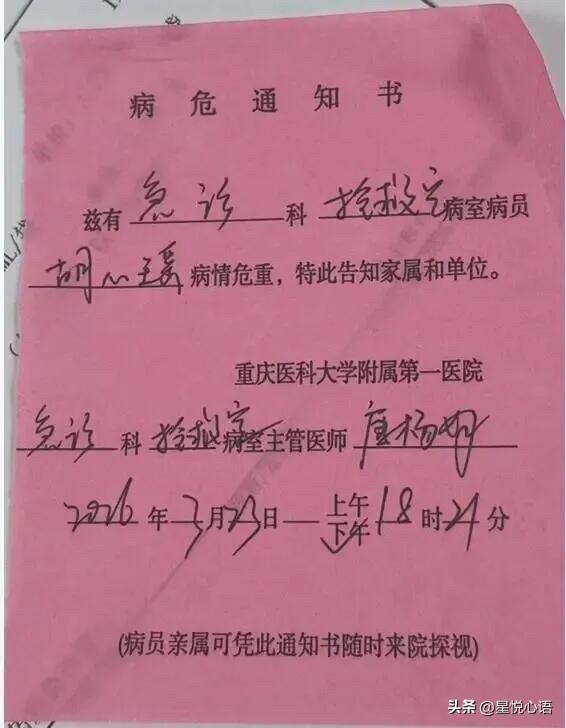 病危通知书
兹有 急诊 科 抢救室 病室病员
胡心瑶 病情危重，特此告知家属和单位。
重庆医科大学附属第一医院
急诊 科 抢救室 病室主管医师
2026 年 3 月 23 日 上午
下午 18 时 24 分
(病员亲属可凭此通知书随时来院探视)
头条 @星悦心语